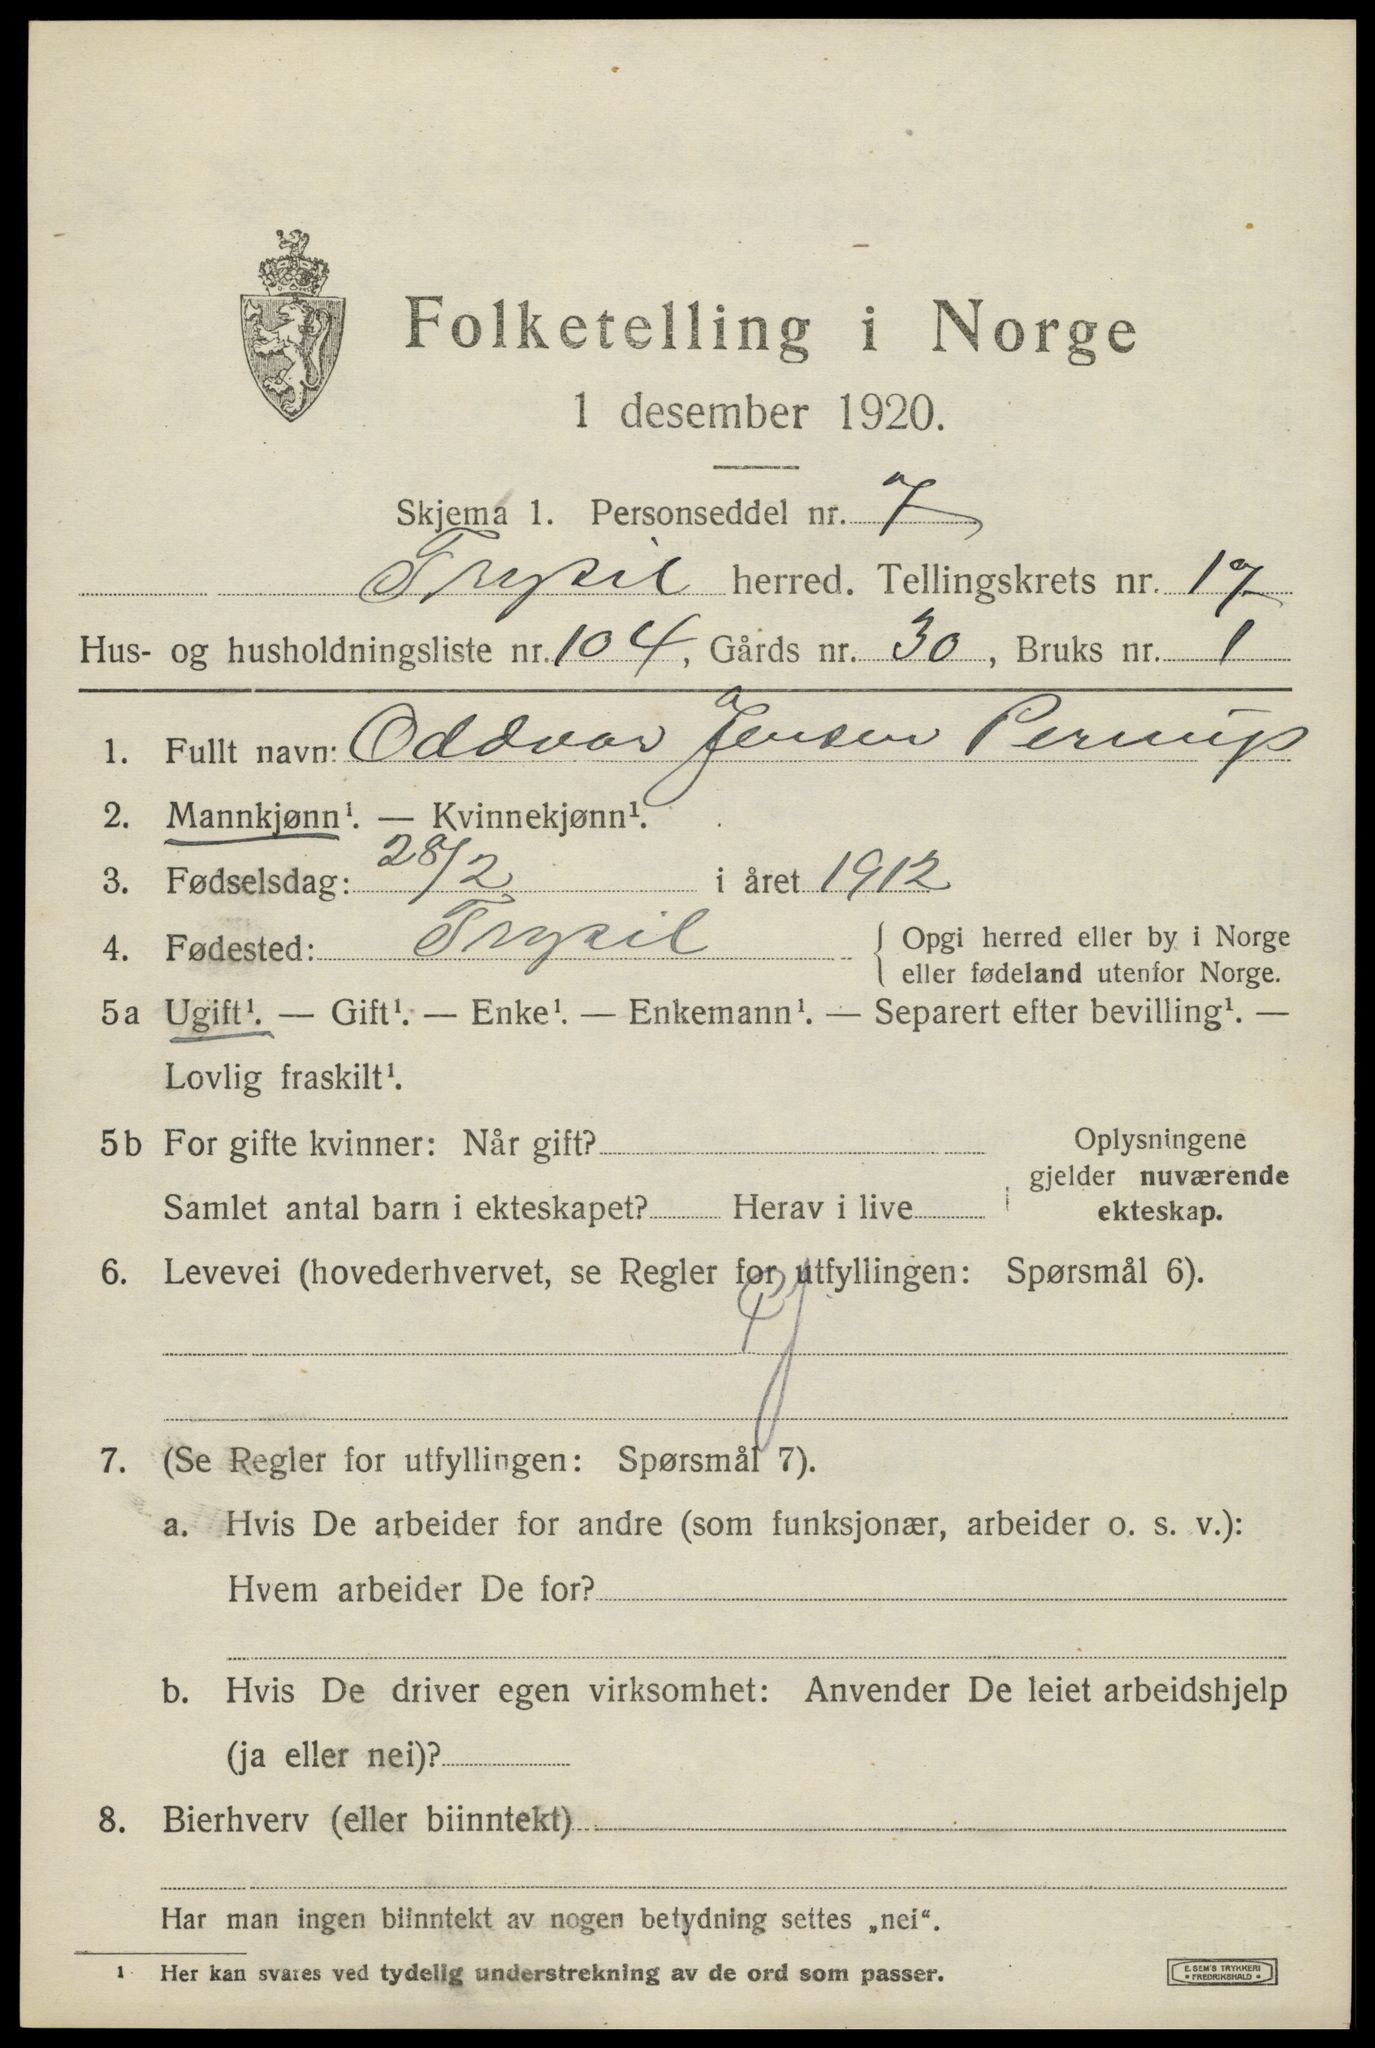 Folketelling i Norge
1 desember 1920.
Skjema 1. Personseddel nr. 7
Trysil herred. Tellingskrets nr. 17
Hus- og husholdningsliste nr. 104, Gårds nr. 30, Bruks nr. 1
1. Fullt navn: Oddvar Jensen
2. Mannkjønn¹. — Kvinnekjønn¹.
3. Fødselsdag: 28/2 i året 1912
4. Fødested: Trysil { Opgi herred eller by i Norge
eller fødeland utenfor Norge.
5a Ugift¹. — Gift¹. — Enke¹. — Enkemann¹. — Separert efter bevilling¹. —
Lovlig fraskilt¹.
5b For gifte kvinner: Når gift?
Samlet antal barn i ekteskapet? Herav i live
Oplysningene
gjelder nuværende
ekteskap.
6. Levevei (hovederhvervet, se Regler for utfyllingen: Spørsmål 6).
7. (Se Regler for utfyllingen: Spørsmål 7).
a. Hvis De arbeider for andre (som funksjonær, arbeider o. s. v.):
Hvem arbeider De for?
b. Hvis De driver egen virksomhet: Anvender De leiet arbeidshjelp
(ja eller nei)?
8. Bierhverv (eller biinntekt)
Har man ingen biinntekt av nogen betydning settes „nei“.
¹ Her kan svares ved tydelig understrekning av de ord som passer.
E. SEM'S TRYKKERI
• FREDRIKSHALD •